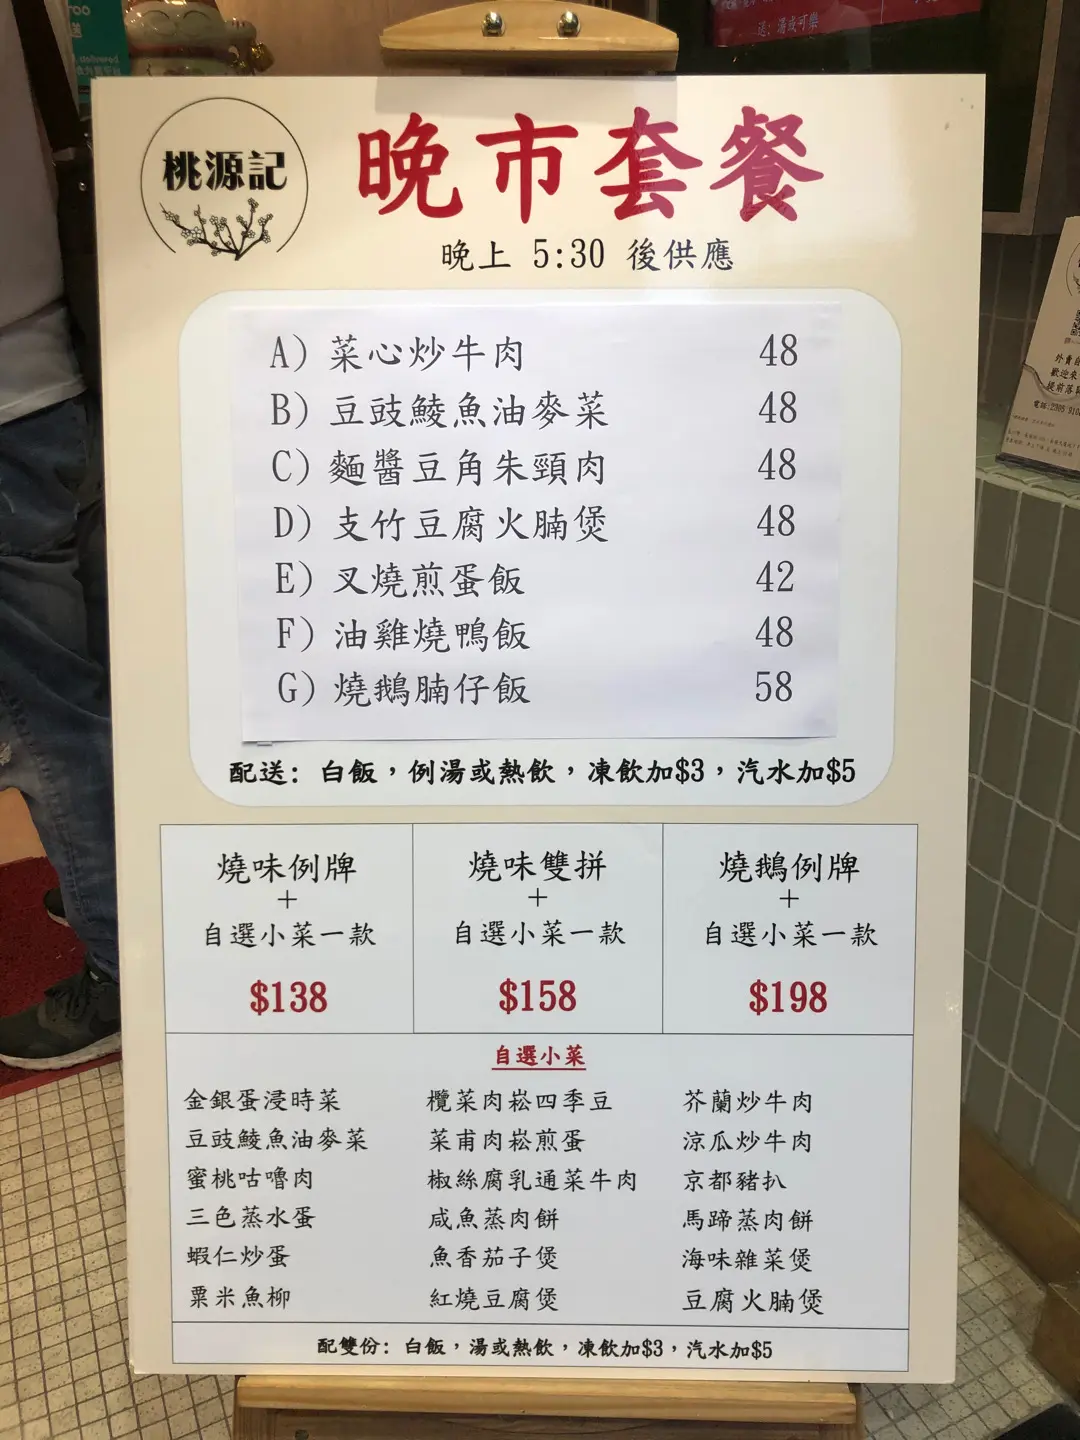 roo
送
delivered
送：湯或可樂
桃源記
晚市套餐
晚上 5:30 後供應
A) 菜心炒牛肉 48
B) 豆豉鯪魚油麥菜 48
C) 麵醬豆角朱頸肉 48
D) 支竹豆腐火腩煲 48
E) 叉燒煎蛋飯 42
F) 油雞燒鴨飯 48
G) 燒鵝腩仔飯 58
配送: 白飯，例湯或熱飲，凍飲加$3，汽水加$5
燒味例牌
+
自選小菜一款
$138
燒味雙拼
+
自選小菜一款
$158
燒鵝例牌
+
自選小菜一款
$198
自選小菜
金銀蛋浸時菜 欖菜肉崧四季豆 芥蘭炒牛肉
豆豉鯪魚油麥菜 菜甫肉崧煎蛋 涼瓜炒牛肉
蜜桃咕嚕肉 椒絲腐乳通菜牛肉 京都豬扒
三色蒸水蛋 咸魚蒸肉餅 馬蹄蒸肉餅
蝦仁炒蛋 魚香茄子煲 海味雜菜煲
粟米魚柳 紅燒豆腐煲 豆腐火腩煲
配雙份: 白飯，湯或熱飲，凍飲加$3，汽水加$5
外賣自
歡迎來
提前落單